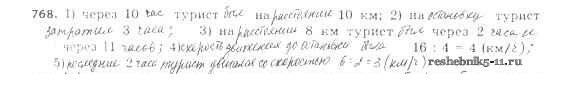 768. 1) через 10 час турист был на расстоянии 10 км; 2) на остановку турист
затратил 3 часа; 3) на расстоянии 8 км турист был через 2 часа и
через 11 часов; 4) скорость движения до остановки была 16 : 4 = 4 (км/ч);
5) последние 2 часа турист двигался со скоростью 6 : 2 = 3 (км/ч)
reshebnik5-11.ru